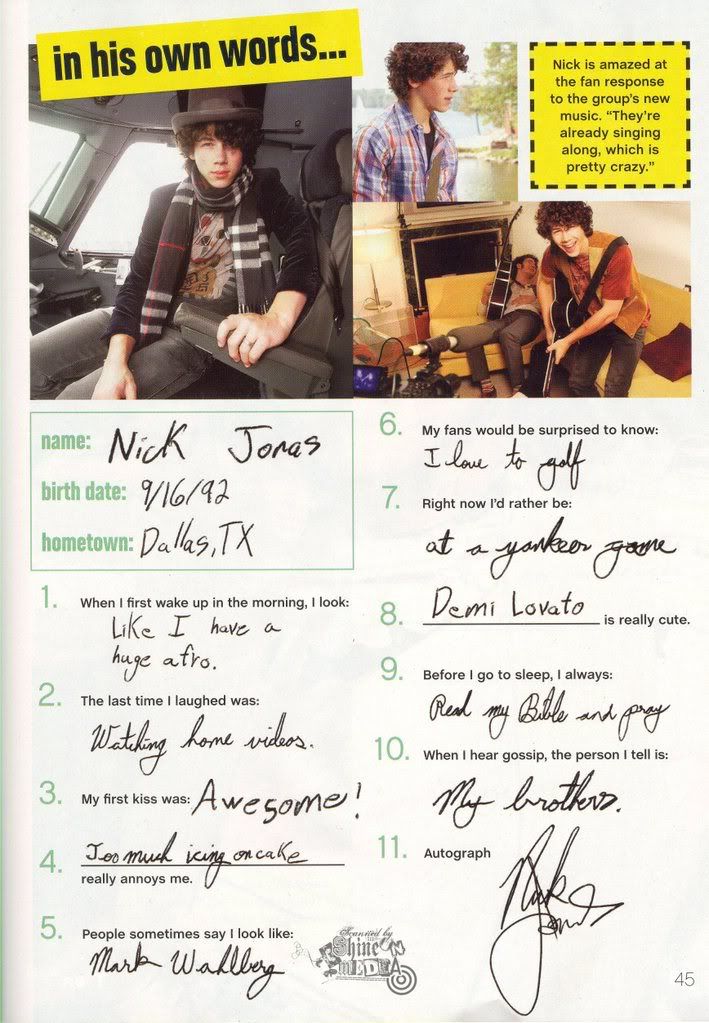 in his own words...
Nick is amazed at
the fan response
to the group's new
music. "They're
already singing
along, which is
pretty crazy."
name: Nick Jonas
birth date: 9/16/92
hometown: Dallas, TX
1. When I first wake up in the morning, I look:
Like I have a
huge afro.
2. The last time I laughed was:
Watching home videos.
3. My first kiss was: Awesome!
4. Too much icing on cake
really annoys me.
5. People sometimes say I look like:
Mark Wahlberg
6. My fans would be surprised to know:
I love to golf
7. Right now I'd rather be:
at a yankees game
8. Demi Lovato is really cute.
9. Before I go to sleep, I always:
Read my Bible and pray
10. When I hear gossip, the person I tell is:
My brothers.
11. Autograph
Nick Jonas
Scanned by
Shine
MEDIA
45